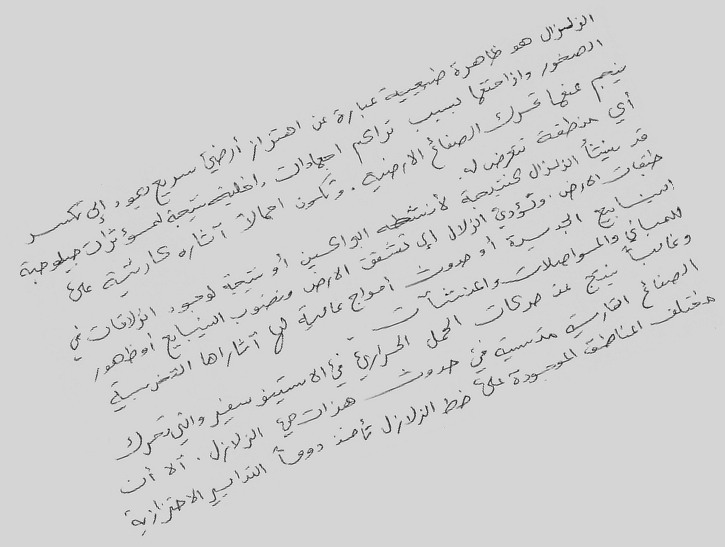 الزلزال هو ظاهرة طبيعية عبارة عن اهتزاز أرضي سريع يعود إلى تكسر
الصخور وازاحتها بسبب تراكم اجهادات داخلية نتيجة لمؤثرات جيولوجية
ينجم عنها تحرك الصفائح الارضية. وتكون اجمالاً آثاره كارثية على
أي منطقة تتعرض له
قد ينشأ الزلزال كنتيجة لأنشطة البراكين أو نتيجة لوجود انزلاقات في
طبقات الارض. وتؤدي الزلازل إلى تشقق الارض ونضوب الينابيع أو ظهور
الينابيع الجديدة أو حدوث أمواج عالية لها آثارها التخريبية
للمباني والمواصلات والمنشآت.
وغالباً ينتج عن حركات الحمل الحراري في الاستينوسفير والتي تحرك
الصفائح القارية متسببة في حدوث هزات هي الزلازل. ألا أن
مختلف المناطق الموجودة على خط الزلازل تأخذ دوماً التدابير الاحترازية